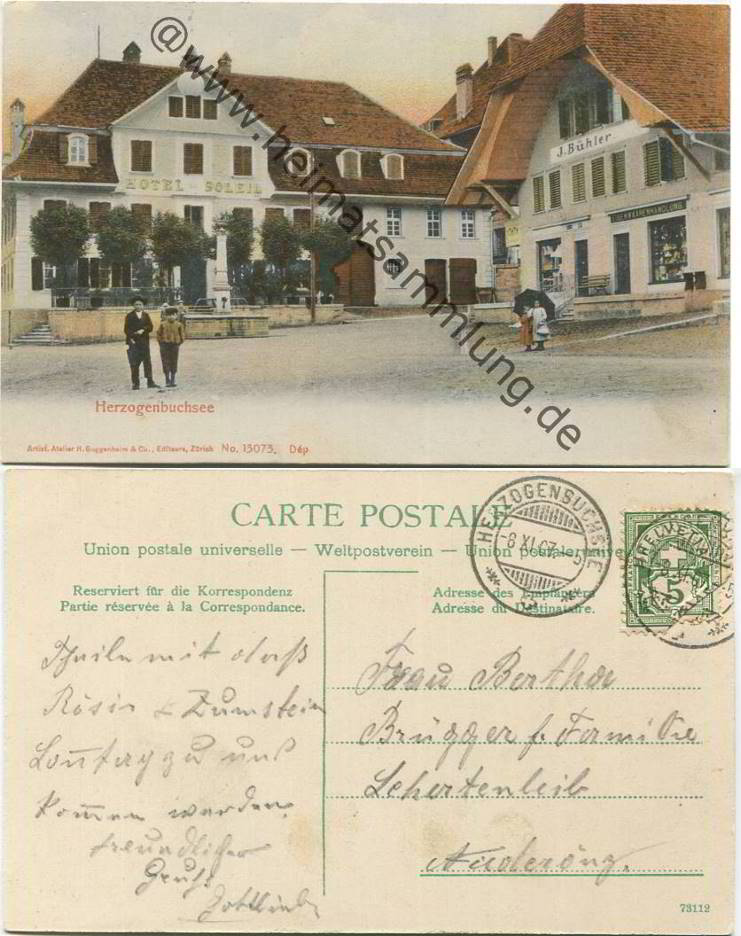 @www.heimatsammlung.de
HOTEL SOLEIL
J. Bühler
Herzogenbuchsee
Artist. Atelier H. Guggenheim & Co., Editeurs, Zürich No. 13073. Dép
CARTE POSTALE
Union postale universelle — Weltpostverein — Union postale universelle
Reserviert für die Korrespondenz
Partie réservée à la Correspondance.
Adresse des Empfängers
Adresse du Destinataire.
HERZOGENBUCHSEE
8 XI 07
HELVETIA
5
Theile mit daß
Rösin & Zumstein
kommen werden
freundlicher
Gruß
Gottlieb
Frau Bertha
Brügger f. Familie
73112